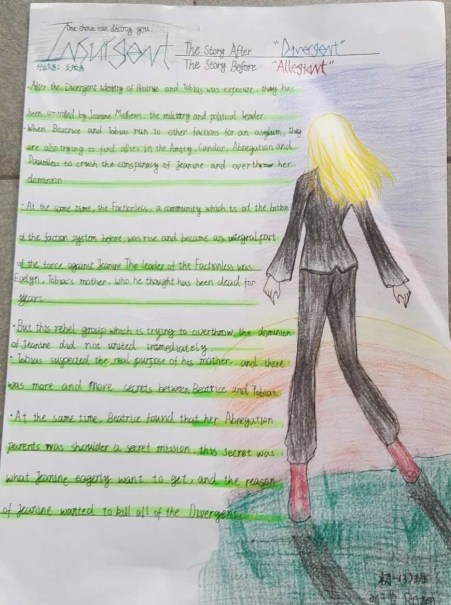 One choice can destroy you.
INSURGENT
The Story After "Divergent"
The Story Before "Allegiant"
·After the Divergent identity of Beatrice and Tobias was exposure, they has
been wanted by Jeanine Mathews, the military and political leader.
·When Beatrice and Tobias run to other factions for an asylum, they
are also trying to find allies in the Amity, Candor, Abnegation and
Dauntless to crush the conspiracy of Jeanine and overthrow her
dominion
·At the same time, the Factionless, a community which is at the bottom
of the faction system before was rise and became an integral part
of the force against Jeanine The leader of the Factionless was
Evelyn, Tobias's mother, who he thought has been dead for
years.
·But this rebel group which is trying to overthrow the dominion
of Jeanine did not united immediately
·Tobias suspected the real purpose of his mother, and there
was more and more secrets between Beatrice and Tobias.
·At the same time, Beatrice found that her Abnegation
parents was shoulder a secret mission, this secret was
what Jeanine eagerly want to get, and the reason
of Jeanine wanted to kill all of the Divergent.